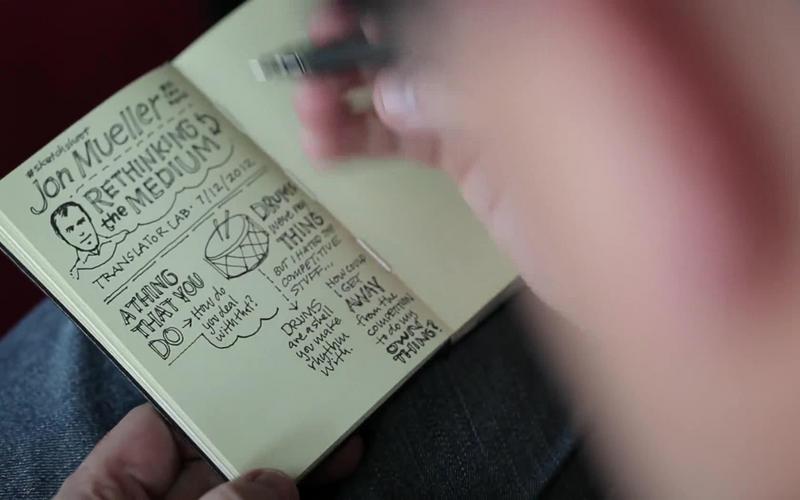 #sketchshoot
Jon Mueller
RETHINKING
the MEDIUM
TRANSLATOR LAB · 7/12/2012
A THING
THAT YOU
DO → How do
you deal
with that?
DRUMS
were my
THING
BUT I HATED THE
COMPETITIVE
STUFF...
DRUMS
are a shell
you make
rhythm
with.
HOW COULD
I GET
AWAY
from the
competition
to do my
OWN
THING?